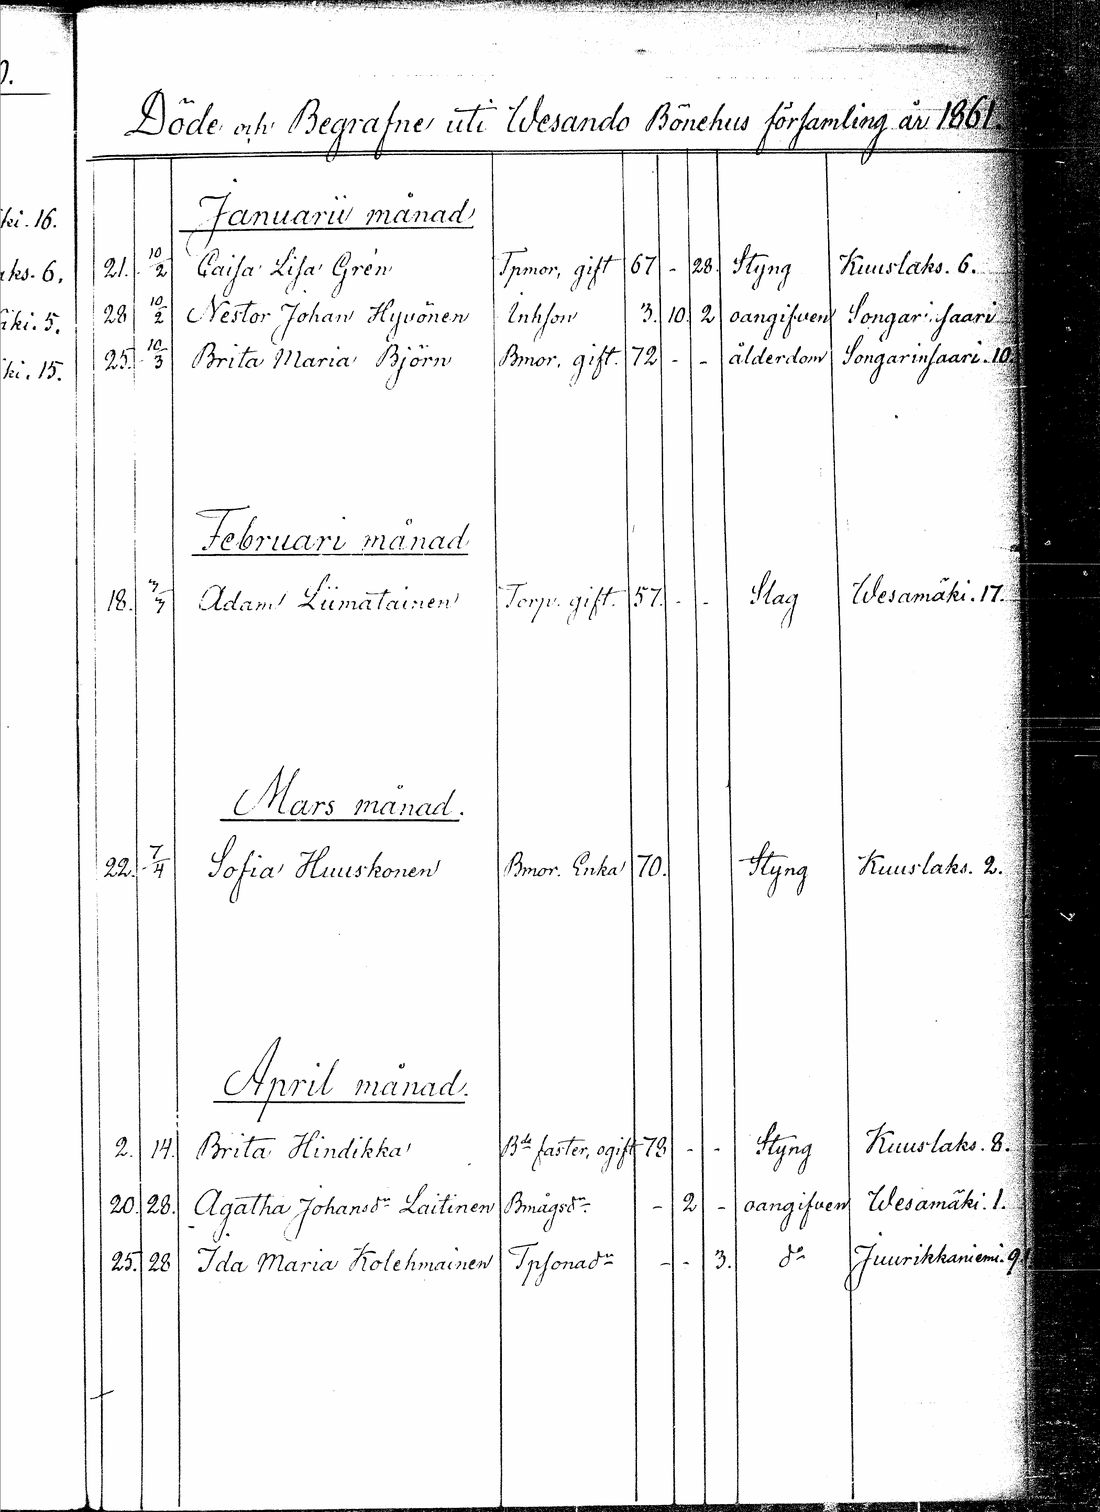 0.
ki. 16.
aks. 6.
äki. 5.
ki. 15.
Döde och Begrafne uti Wesando Bönehus församling år 1861.
Januarii månad
21. 10/2 Caisa Lisa Grén Tpmor, gift 67 - 28. Styng Kuuslaks. 6.
28 10/2 Nestor Johan Hyvönen Inhson 3. 10. 2 oangifven Songari saari
25. 10/3 Brita Maria Björn Bmor, gift. 72 - - ålderdom Songarinsaari. 10.
Februari månad
18. 3/3 Adam Liimatainen Torp. gift. 57. - - Slag Wesamäki. 17.
Mars månad.
22. 7/4 Sofia Huuskonen Bmor. Enka 70. Styng Kuuslaks. 2.
April månad.
2. 14. Brita Hindikka Bds faster, ogift 73 - - Styng Kuuslaks. 8.
20. 28. Agatha Johansdr Laitinen Bmågsdr. - 2 - oangifven Wesamäki. 1.
25. 28 Ida Maria Kolehmainen Tpsonadr - - 3. do Juurikkaniemi. 9